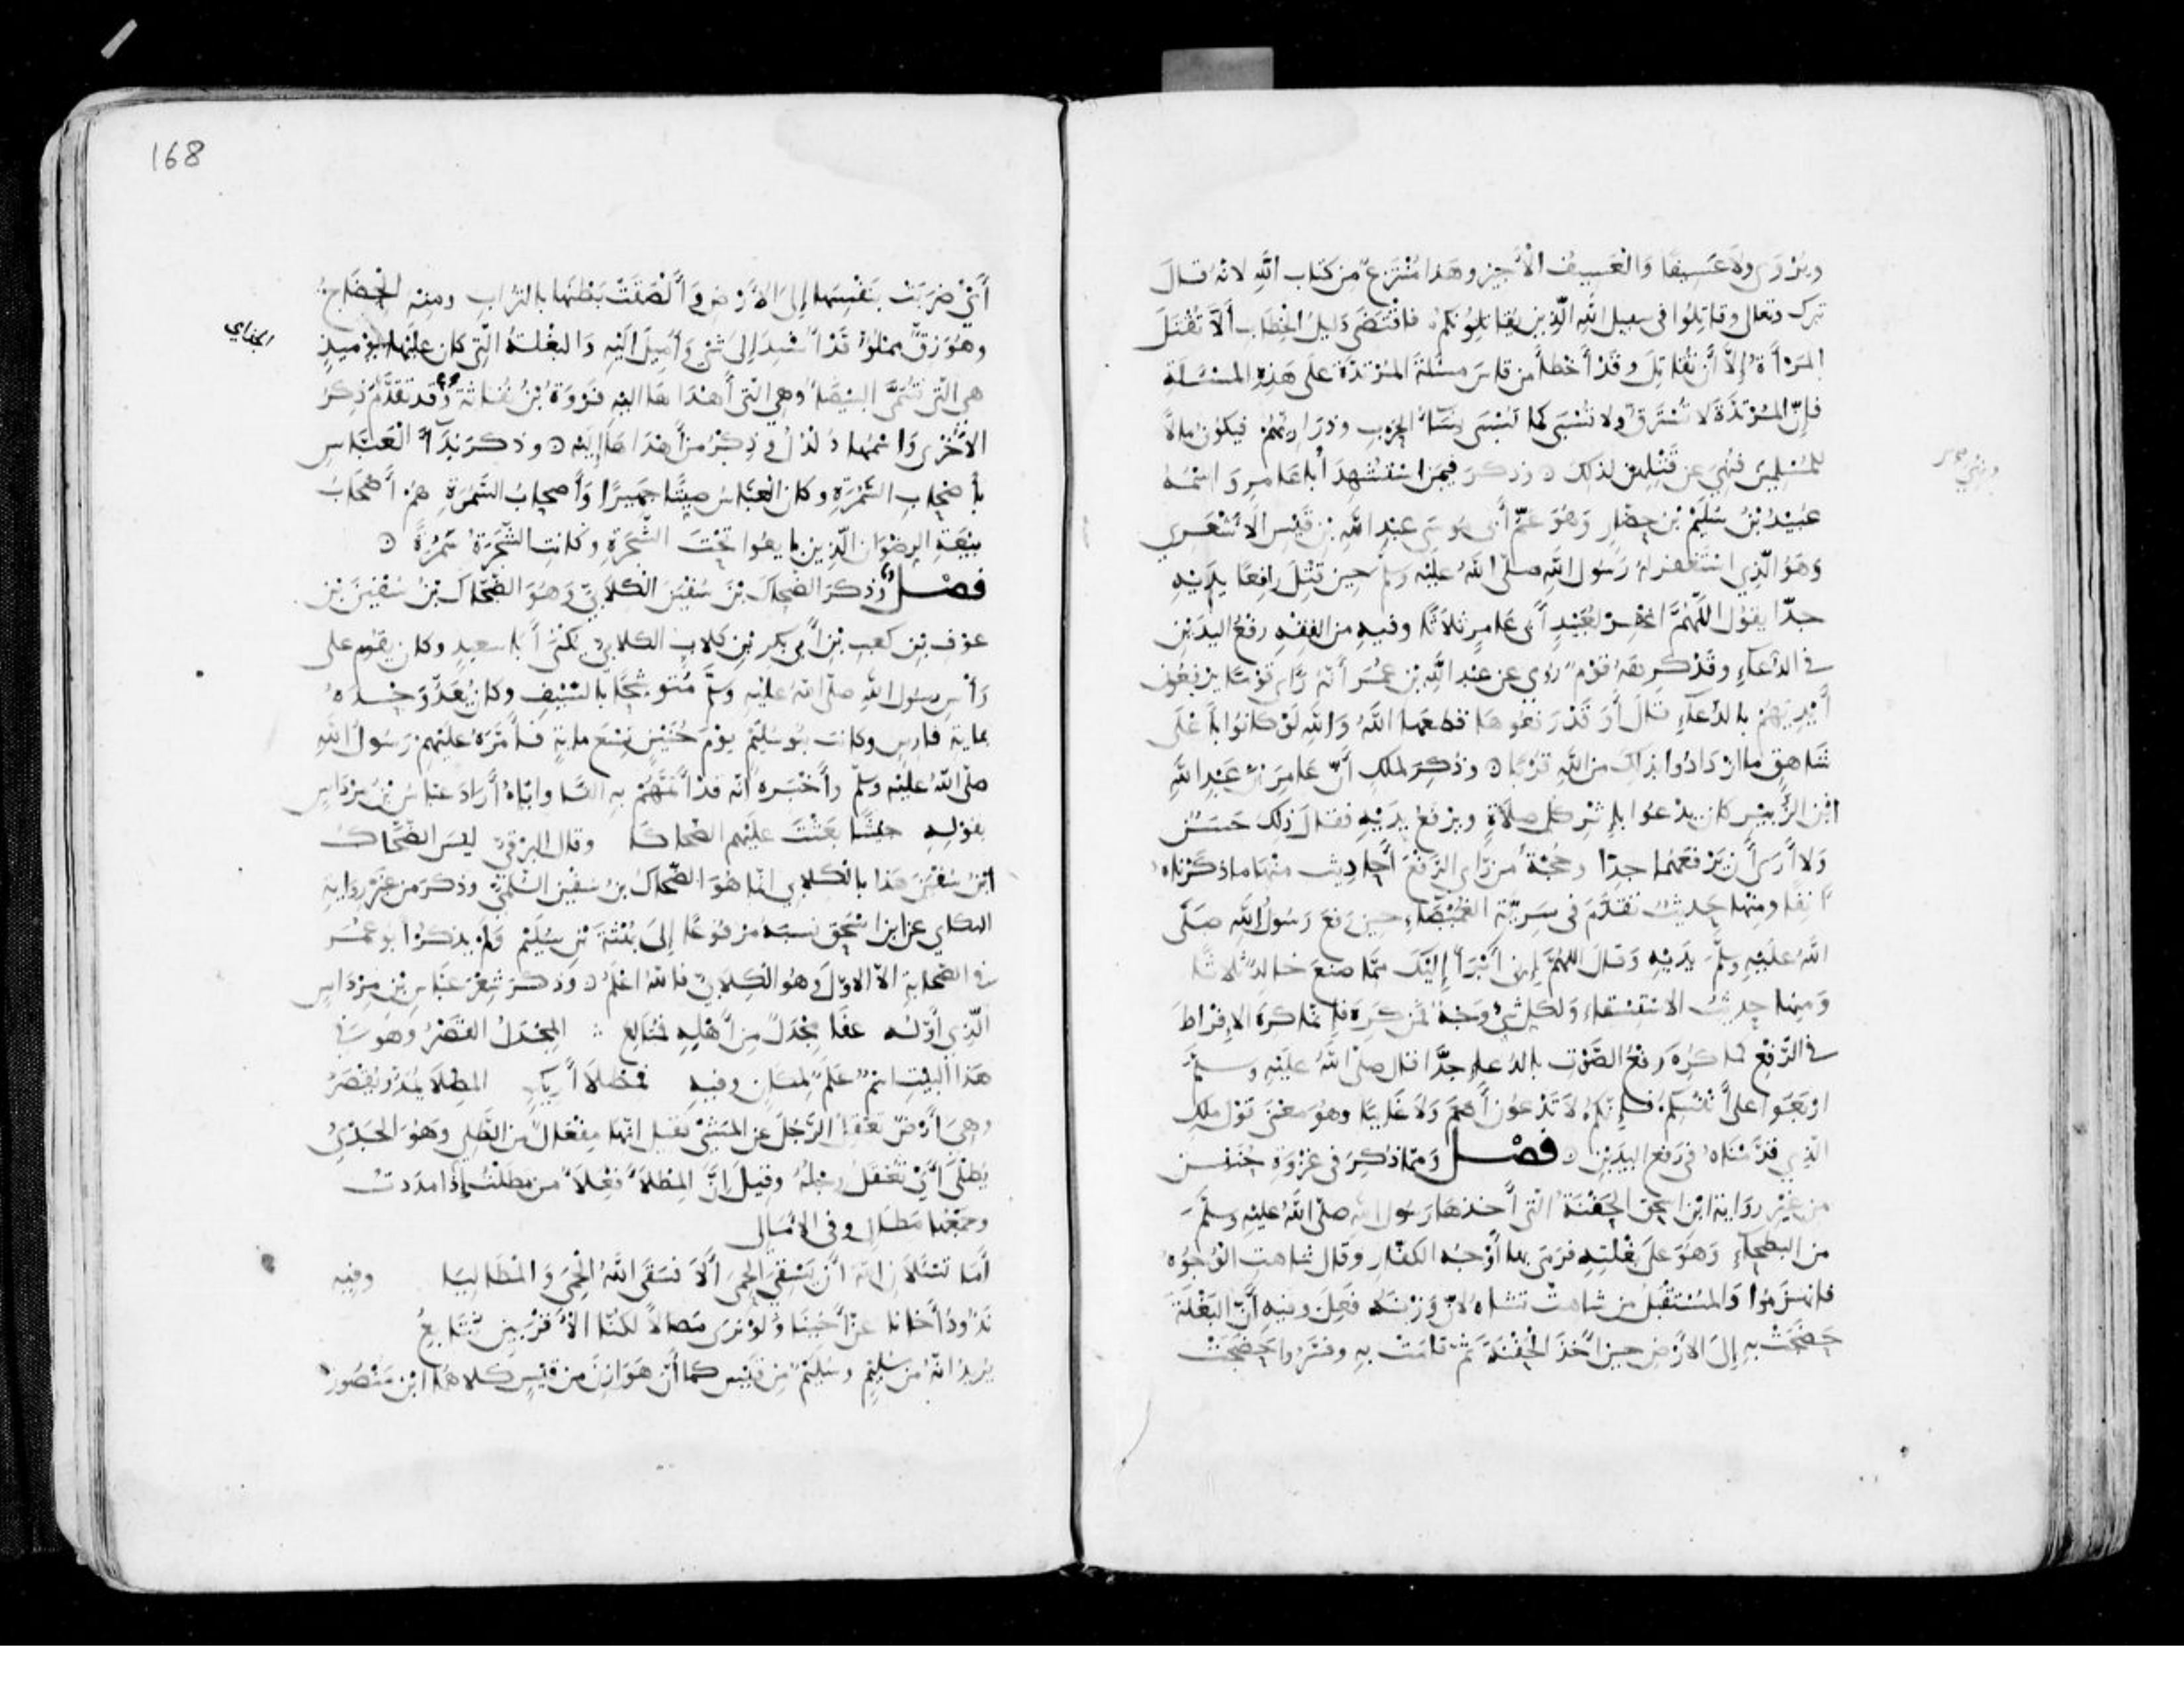 ويروى ولا عسيفا والعسيف الأجير وهذا منتزع من كتاب الله لانه قال
تبرك وتعلى وقاتلوا في سبيل الله الذين يقاتلونكم فاقتضى دليل الخطاب ألا تقتل
المرأة إلا أن تقاتل وقد أخطأ من قاس مسئلة المرتدة على هذه المسئلة
فإن المرتدة لا تسترق ولا تسبى كما تسبى نساء الحرب وذراريهم فيكون مالا
للمسلمين فنهي عن قتلهن لذلك وذكر فيمن استشهد أبا عامر واسمه
عبيد بن سليم بن حضار وهو عم أبي موسى عبد الله بن قيس الأشعري
وهو الذي استغفر له رسول الله صلى الله عليه وسلم حين قتل رافعا يديه
جدا يقول اللهم اغفر لعبيد أبي عامر ثلاثا وفيه من الفقه رفع اليدين
في الدعاء وقد كرهه قوم روي عن عبد الله بن عمر أنه رأى قوما يرفعون
أيديهم بالدعاء فقال أو قد رفعوها قطعها الله والله لو كانوا بأعلى
شاهق ما ازدادوا بذلك من الله قربا وذكر لملك أن عامر بن عبد الله
ابن الزبير كان يدعوا بإثر كل صلاة ويرفع يديه فقال ذلك حسن
ولا أرى أن يرفعهما جدا وحجة من رأى الرفع أحاديث منها ما ذكرناه
آنفا ومنها حديث تقدم في سرية الغميصاء حين رفع رسول الله صلى
الله عليه وسلم يديه وقال اللهم إني أبرأ إليك مما صنع خالد ثلاثا
ومنها حديث الاستسقاء ولكل شيء وجه فمن كره فإنما كره الإفراط
في الرفع كما كره رفع الصوت بالدعاء جدا قال صلى الله عليه وسلم
اربعوا على أنفسكم فإنكم لا تدعون أصم ولا غايبا وهو معنى قول ملك
الذي قدمناه في رفع اليدين فصل ومما ذكر في غزوة حنين
من غير رواية ابن اسحق الحفنة التي أخذها رسول الله صلى الله عليه وسلم
من البطحاء وهو على بغلته فرمى بها أوجه الكفار وقال شاهت الوجوه
فانهزموا والمستقبل من شاهت تشاه لان وزنه فعل وفيه أن البغلة
حضجت به إلى الأرض حين أخذ الحفنة ثم قامت به وفسروا حضجت
168
أي ضربت بنفسها إلى الأرض وألصقت بطنها بالتراب ومنه الحضاج
وهو زق مملوء قد أسند إلى شيء وأميل اليه والبغلة التي كان عليها يوميذ
هي التي تسمى البيضاء وهي التي أهداها اليه فروة بن نفاثة وقد تقدم ذكر
الأخرى واسمها دلدل وذكر من أهداها إليه وذكر نداء العباس
يا أصحاب السمرة وكان العباس صيتا جهيرا وأصحاب السمرة هم أصحاب
بيعة الرضوان الذين بايعوا تحت الشجرة وكانت الشجرة سمرة
فصل وذكر الضحاك بن سفين الكلابي وهو الضحاك بن سفين بن
عوف بن كعب بن أبي بكر بن كلاب الكلابي يكنى أبا سعيد وكان يقوم على
رأس رسول الله صلى الله عليه وسلم متوشحا بالسيف وكان يعد وحده
بماية فارس وكانت بنو سليم يوم حنين تسع ماية فأمره عليهم رسول الله
صلى الله عليه وسلم وأخبره انه قد أتمهم به ألفا واياه أراد عباس بن مرداس
بقوله جيشا بعثت عليهم الضحاكا وقال البرقي ليس الضحاك
ابن سفين هذا بالكلابي انما هو الضحاك بن سفين السلمي وذكر من غير رواية
البكاي عن ابن اسحق نسبه مرفوعا إلى بهثة بن سليم ولم يذكر أبو عمر
في الصحابة الا الاول وهو الكلابي فالله اعلم وذكر شعر عباس بن مرداس
الذي أوله عفا مجدل من أهله فمتالع المجدل القصر وهو في
هذا البيت اسم علم لمكان وفيه فمطلا أريك المطلا يمد ويقصر
وهي أرض تعقل الرجل عن المشي فقيل انها مفعال من الطلي وهو الجدي
يطلى أي تعقل رجله وقيل إن المطلاء فعلاء من مطلت إذا مددت
وجمعها مطال وفي الأمالي
أما تسئلان الله أن يسقي الحمى ألا فسقى الله الحمى والمطاليا وفيه
نذود أخانا عن أخينا ولو نرى مصالا لكنا الأقربين نتابع
يريد انه من سليم وسليم من قيس كما أن هوازن من قيس كلاهما ابن منصور